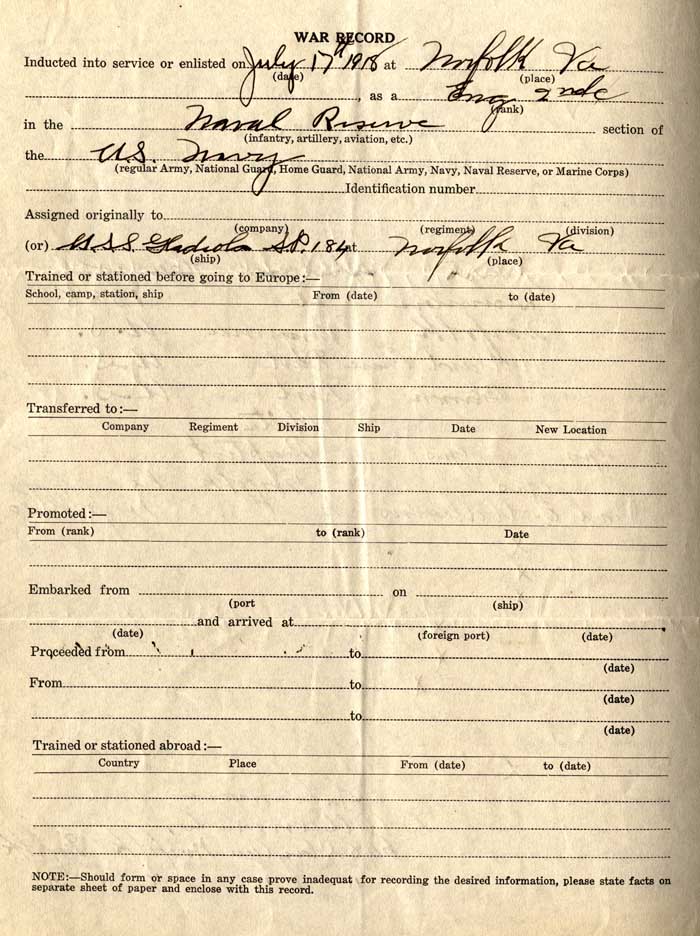 WAR RECORD
Inducted into service or enlisted on July 17th 1918 at Norfolk Va
(date) (place)
, as a Eng 2ndc
(rank)
in the Naval Reserve section of
(infantry, artillery, aviation, etc.)
the U.S. Navy
(regular Army, National Guard, Home Guard, National Army, Navy, Naval Reserve, or Marine Corps)
Identification number
Assigned originally to
(company) (regiment) (division)
(or) U.S.S. Gladiola S.P. 184 at Norfolk Va
(ship) (place)
Trained or stationed before going to Europe:—
School, camp, station, ship From (date) to (date)
Transferred to:—
Company Regiment Division Ship Date New Location
Promoted:—
From (rank) to (rank) Date
Embarked from on
(port (ship)
and arrived at
(date) (foreign port) (date)
Proceeded from to
(date)
From to
(date)
to
(date)
Trained or stationed abroad:—
Country Place From (date) to (date)
NOTE:—Should form or space in any case prove inadequat for recording the desired information, please state facts on
separate sheet of paper and enclose with this record.